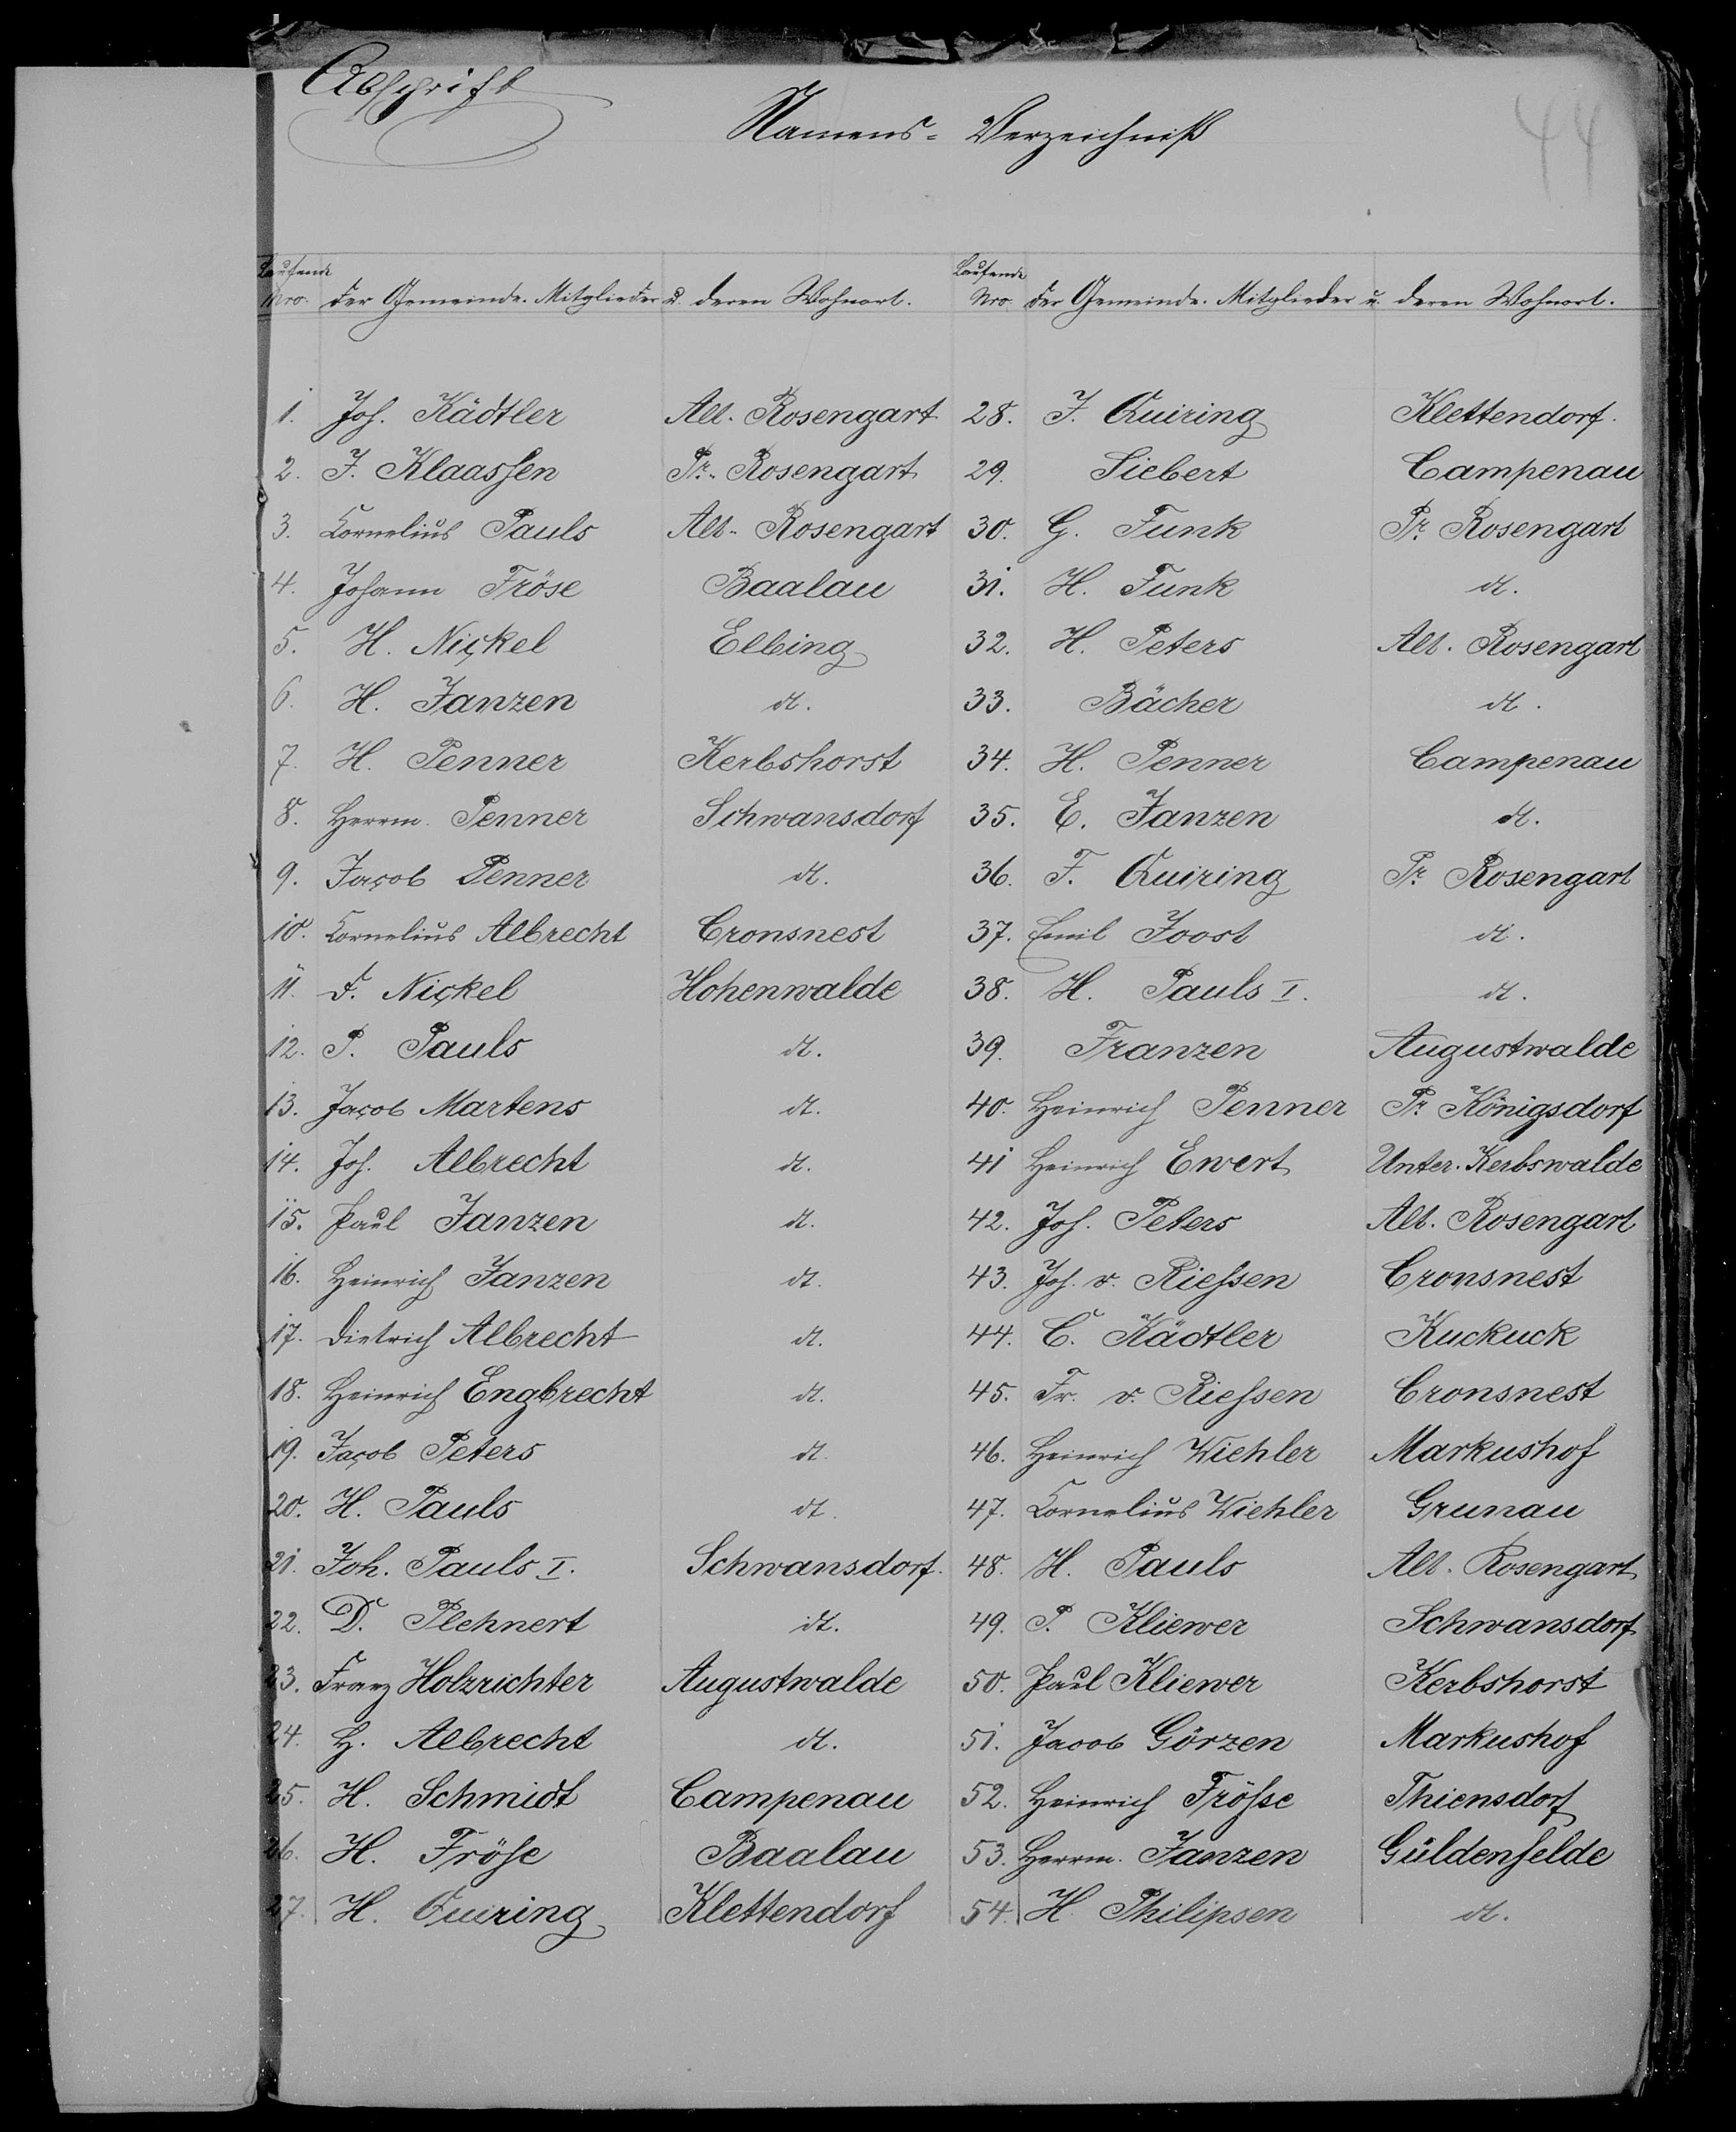 Abschrift
44
Namens- Verzeichniß
Laufende Nro. der Gemeinde. Mitglieder u. deren Wohnort.
Laufende Nro. der Gemeinde. Mitglieder u. deren Wohnort.
1. Joh. Kädtler Alt. Rosengart
2. J. Klaassen Pr. Rosengart
3. Cornelius Pauls Alt. Rosengart
4. Johann Fröse Baalau
5. H. Nickel Elbing
6. H. Janzen dt.
7. H. Penner Kerbshorst
8. Herrm. Penner Schwansdorf
9. Jacob Penner dt.
10. Cornelius Albrecht Cronsnest
11. D. Nickel Hohenwalde
12. P. Pauls dt.
13. Jacob Martens dt.
14. Joh. Albrecht dt.
15. Paul Janzen dt.
16. Heinrich Janzen dt.
17. Dietrich Albrecht dt.
18. Heinrich Engbrecht dt.
19. Jacob Peters dt.
20. H. Pauls dt.
21. Joh. Pauls I. Schwansdorf.
22. D. Plehnert dt.
23. Franz Holzrichter Augustwalde
24. H. Albrecht dt.
25. H. Schmidt Campenau
26. H. Fröse Baalau
27. H. Quiring Klettendorf
28. J. Quiring Klettendorf.
29. Siebert Campenau
30. G. Funk Pr. Rosengart
31. H. Funk dt.
32. H. Peters Alt. Rosengart
33. Bächer dt.
34. H. Penner Campenau
35. E. Janzen dt.
36. F. Quiring Pr. Rosengart
37. Emil Joost dt.
38. H. Pauls I. dt.
39. Franzen Augustwalde
40. Heinrich Penner Pr. Königsdorf
41 Heinrich Ewert Unter. Kerbswalde
42. Joh. Peters Alt. Rosengart
43. Joh. v. Riessen Cronsnest
44. C. Kädtler Kuckuck
45. Fr. v. Riessen Cronsnest
46. Heinrich Wiehler Markushof
47. Cornelius Wiehler Grunau
48. H. Pauls Alt. Rosengart
49. P. Kliewer Schwansdorf
50. Paul Kliewer Kerbshorst
51. Jacob Görzen Markushof
52. Heinrich Frösse Thiensdorf
53. Herrm. Janzen Güldenfelde
54. H. Philipsen dt.